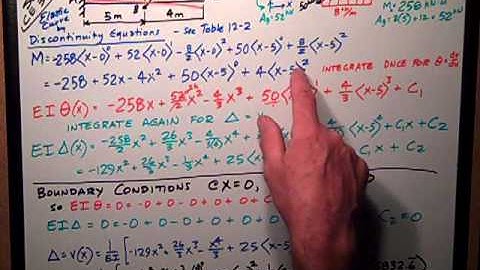 Elastic Curve by
5m 4m
Ay=52 kN
Ay=8(5)+12=52 kN
Discontinuity Equations - see Table 12-2
M=-258<x-0>⁰+52<x-0>¹-8/2<x-0>²+50<x-5>⁰+8/2<x-5>²
=-258+52x-4x²+50<x-5>⁰+4<x-5>²
INTEGRATE ONCE FOR θ=dv/dx
EIθ(x)=-258x+52/2x²-4/3x³+50<x-5>¹+4/3<x-5>³+C₁
INTEGRATE AGAIN FOR Δ=
EIΔ(x)=-258/2x²+26/3x³-4/3(4)x⁴+ +C₁x+C₂
=-129x²+26/3x³-1/3x⁴+25<x-5> C₁x+C₂
BOUNDARY CONDITIONS @x=0,
SO EIθ=0=-0+0-0+0+0+C
EIΔ=0=-0+0-0+0+0 C₂=0
Δ=v(x)=1/EI[-129x²+26/3x³-x⁴/3+25<x-5>